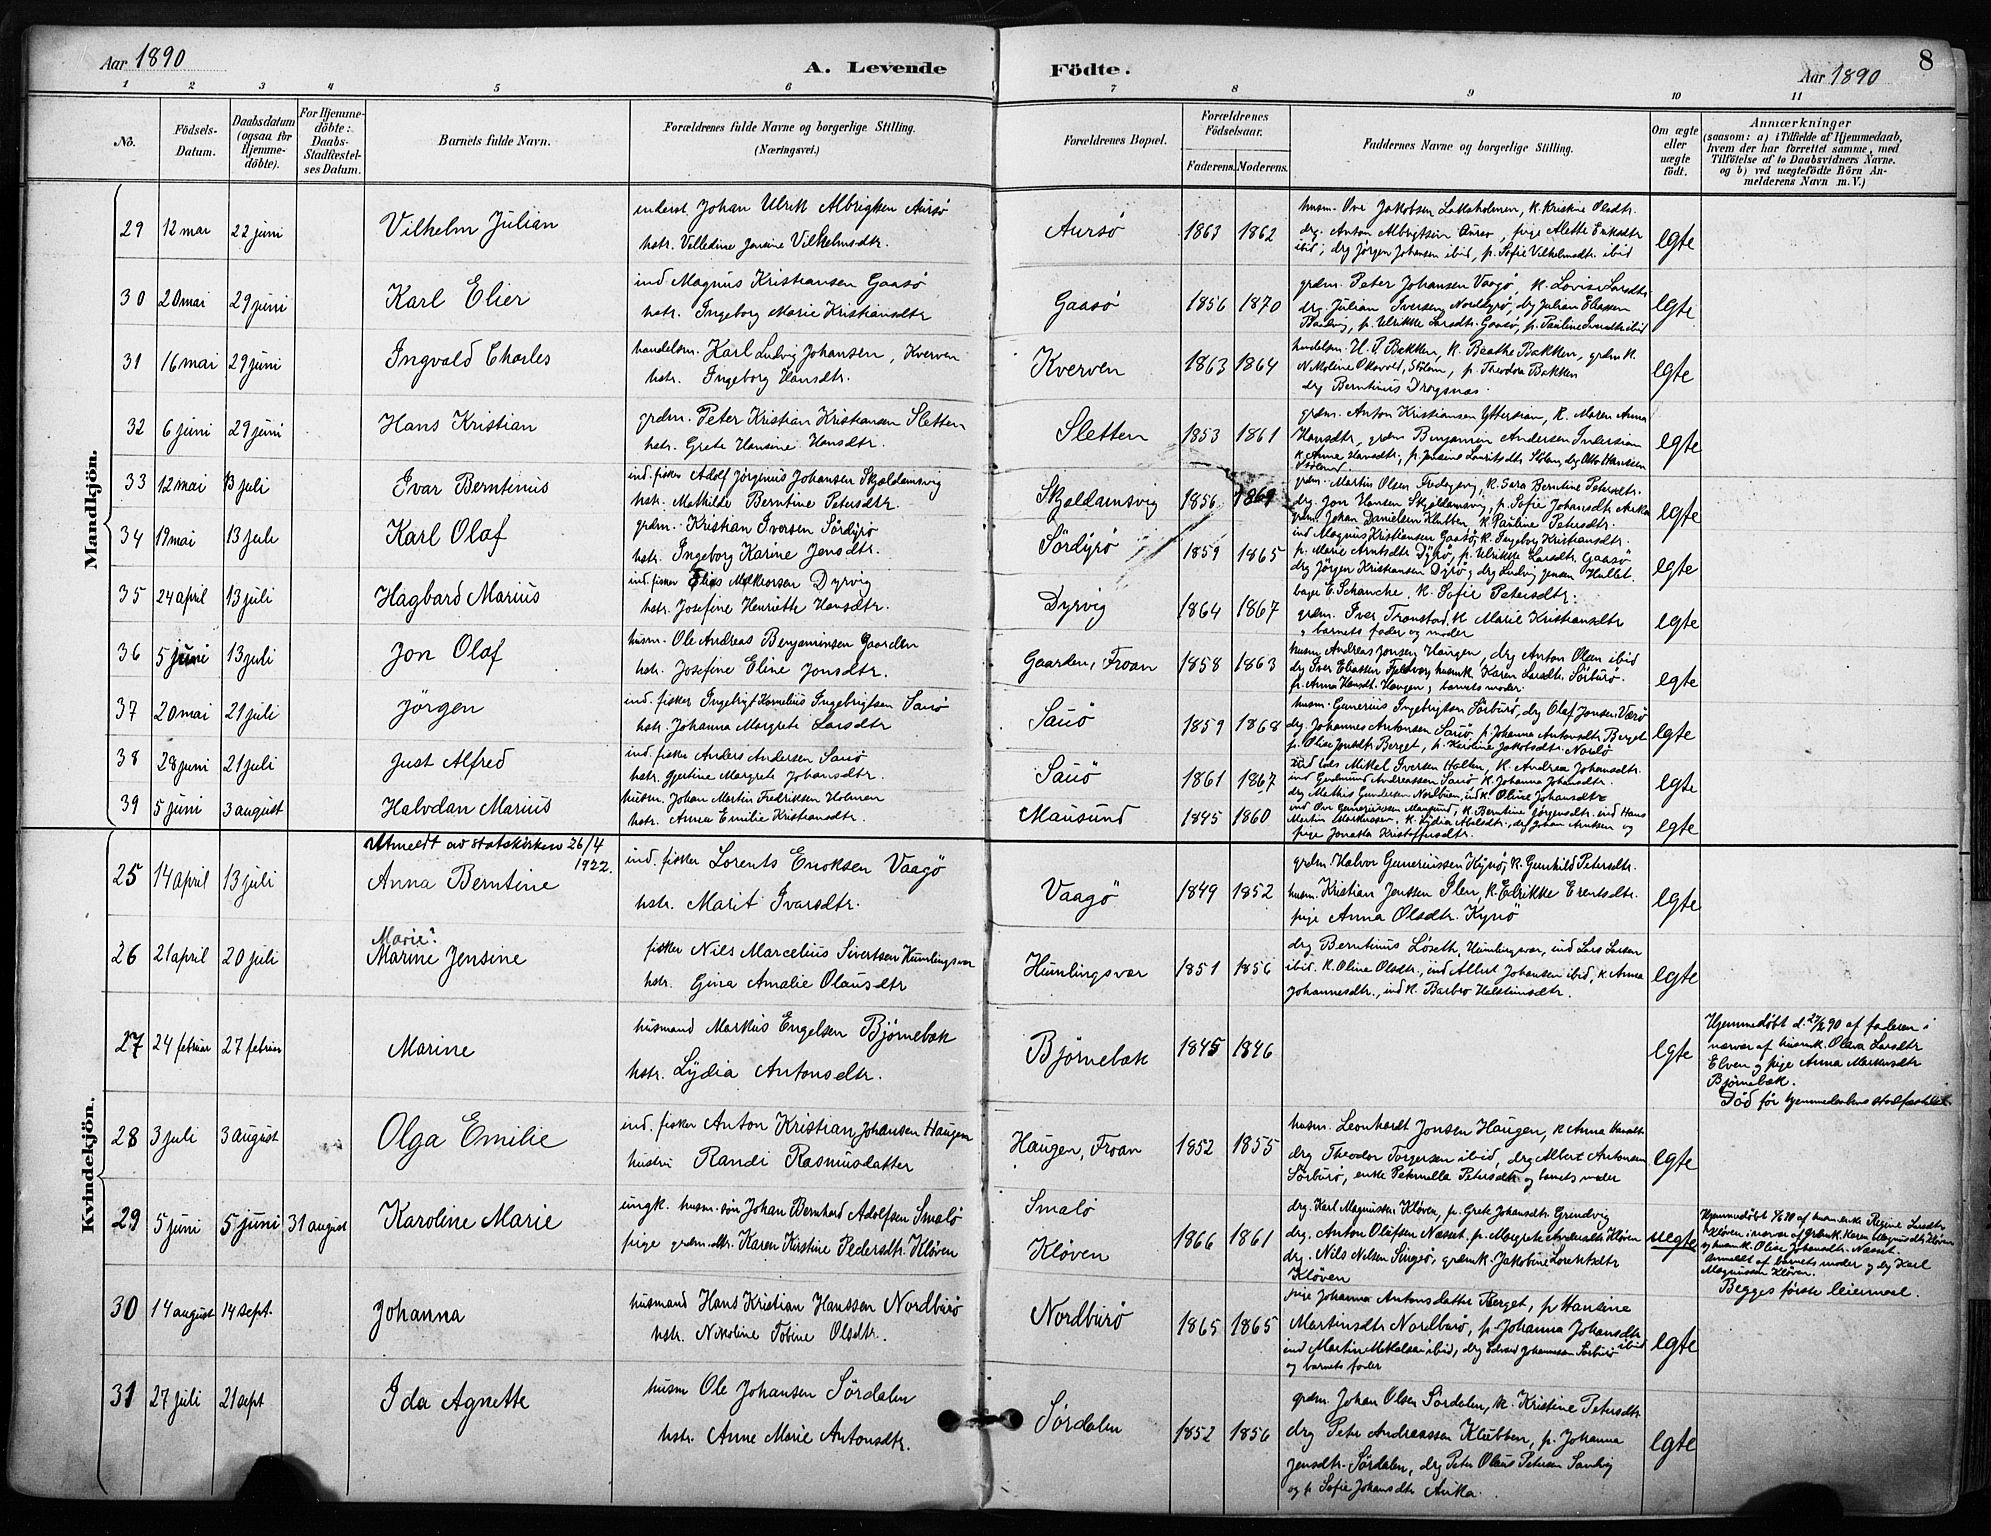 Aar 1890
A. Levende
Födte.
Aar 1890
8
1 2 3 4 5 6 7 8 9 10 11
No.
Födsels-
Datum.
Daabsdatum
(ogsaa for
Hjemme-
döbte).
For Hjemme-
döbte:
Daabs-
Stadfæstel-
ses Datum.
Barnets fulde Navn.
Forældrenes fulde Navne og borgerlige Stilling.
(Næringsvei.)
Forældrenes Bopæl.
Forældrenes
Födselsaar.
Faderens. Moderens.
Faddernes Navne og borgerlige Stilling.
Om ægte
eller
uægte
födt.
Anmærkninger
(saasom: a) i Tilfælde af Hjemmedaab,
hvem der har forrettet samme, med
Tilföielse af to Daabsvidners Navne.
og b) ved uægtefödte Börn An-
melderens Navn m. V.)
Mandkjön.
29 12 mai 22 juni Vilhelm Julian
inderst Johan Ulrik Albrigtsen Aursö
hstr. Villedine Jensine Vilhelmsdtr.
Aursö 1863 1862
husm. Ove Jakobsen Laksholmen, k. Kristine Olsdtr.
drg. Anton Albrigtsen Aursö, pige Alette Eriksdtr
ibid; drg Jörgen Johansen ibid, p. Sofie Vilhelmsdtr ibid
egte
30 20 mai 29 juni Karl Elier
ind Magnus Kristiansen Gaasö
hstr. Ingeborg Marie Kristiansdtr
Gaasö 1856 1870
grdm. Peter Johansen Vaagö, k. Lovise Larsdtr
drg. Julian Iversen Norddyrö, drg Julian Eliassen
p. Ulrikke Larsdtr. Gaasö, p. Pauline ibid
egte
31 16 mai 29 juni Ingvald Charles
handelsm. Karl Ludvig Johansen, Kverven
hstr. Ingeborg Hansdtr.
Kverven 1863 1864
handelsm. H. P. Bakken, k. Beathe Bakken, grdm k.
p. Theodora Bakken
drg Berntinus Dragsnas
egte
32 6 juni 29 juni Hans Kristian
grdm. Peter Kristian Kristiansen Sletten
hstr. Grete Hansine Hansdtr.
Sletten 1853 1861
grdm. Anton Kristiansen Ytterdran, k. Maren Anna
Hansdtr, grdm Benjamin Andersen Inderdran
k. Anne Hansdtr; p. Jensine Lauritsdtr Stölan, drg Otto Hanssen
egte
33 12 mai 13 juli Ivar Berntinus
ind. fisker Adolf Jörginus Johansen Skjældamsvig
hstr. Mathilde Berntine Petersdtr.
Skjældamsvig 1856 1869
grdm. Martin Olsen k. Sara Berntine Petersdtr.
drg. Jon Hansen Skjældamsvig, p. Sofie Johansdtr Auka
grdm. Johan Danielsen Klubben, k. Pauline Petersdtr.
egte
34 19 mai 13 juli Karl Olaf
grdm. Kristian Iversen Sördyrö
hstr. Ingeborg Karine Jensdtr.
Sördyrö 1859 1865
ind Magnus Kristiansen Gaasö, k. Ingeborg Kristiansdtr.
p. Marie Arntsdtr Dyrö, p. Ulrikke Larsdtr. Gaasö
drg Jörgen Kristiansen Dyrö, drg Ludvig Jensen Hallet.
egte
35 24 april 13 juli Hagbard Marius
ind. fisker Elias Melkiorsen Dyrvig
hstr. Josefine Henriette Hansdtr.
Dyrvig 1864 1867
E. Schancke, k. Sofie Petersdtr.
grdm. Iver Transtad, k Marie Kristiansdtr
, barnets fader og moder
egte
36 5 juni 13 juli Jon Olaf
husm. Ole Andreas Benjaminsen Gaarden
hstr. Josefine Eline Jonsdtr.
Gaarden, Froan 1858 1863
husm. Andreas Jonsen Haugen, drg Anton Olsen ibid
drg Iver Eliassen Fjeldvær, husm.k. Karen Larsdtr Sörburö.
p. Anna Hansdtr. Haugen, barnets moder.
egte
37 20 mai 21 juli Jörgen
ind. fisker Ingebrigt Kornelius Ingebrigtsen Sauö
hstr. Johanna Margrete Larsdtr
Sauö 1859 1868
husm. Gunerius Ingebrigtsen Sörburö, drg Olaf Jonsen Værö
drg. Johannes Antonsen Sauö, p. Johanna Antonsdtr. Berget
p. Olise Jonsdtr Berget, p. Kirstine Jakobsdtr. Norlö
egte
38 28 juni 21 juli Just Alfred
ind. fisker Anders Andersen Sauö
hstr. Gjertine Margrete Johansdtr.
Sauö 1861 1867
Mikkel Iversen Holten, k. Andrea Johansdtr.
ind Gudmund Andreassen Sauö, k. Johanna Johansdtr.
drg Mathis Gundersen Nordbuen, ind. k. Oline Johansdtr
egte
39 5 juni 3 august Halvdan Marius
husm. Johan Martin Fredriksen Holmen
hstr. Anna Emilie Kristiansdtr.
Mausund 1845 1860
ind Ove Gunerius­sen Mausund, k. Berntine Jörgensdtr. ind Hans
Martin Markussen, k. Lydia Abelsdtr., drg Johan Arntsen og
pige Jonetta Kristoffersdtr.
egte
Kvindekjön.
Utmeldt av statskirken 26/4
1922.
25 14 april 13 juli Anna Berntine
ind. fisker Lorents Enoksen Vaagö
hstr. Marit Ivarsdtr.
Vaagö 1849 1852
grdm. Halvor Gunerius­sen Kynö, k. Gunhild Petersdtr.
husm. Kristian Jenssen Ilen, k. Edrikke Erentsdtr.
pige Anna Olsdtr. Kynö
egte
Marie
26 21 april 20 juli Marine Jensine
fisker Nils Marcelius Sivertsen Humlingsvær
hstr. Gina Amalie Olausdtr
Humlingsvær 1851 1856
drg Berntinus Löseth, Humlingsvær, ind Lars Larsen
ibid. k. Oline Olsdtr., ind Albert Johansen ibid, k. Anna
Johannesdtr., ind k. Barbro Halsteinsdtr.
egte
27 24 februar 27 februar Marine
husmand Markus Engelsen Björnebæk
hstr. Lydia Antonsdtr.
Björnebæk 1845 1846
egte
Hjemmedöbt d. 27/2 90 af faderen i
nærvær af husm.k. Olava Larsdtr
Elven og pige Anna Markusdtr
Björnebæk.
Död för hjemmedaabens stadfæstelse
28 3 juli 3 august Olga Emilie
ind. fisker Anton Kristian Johansen Haugen
hustru Randi Rasmusdatter
Haugen, Froan 1852 1855
husm. Leonhardt Jonsen Haugen, k Anna Hansdtr
drg Theodor Torgersen ibid, drg Albert Antonsen
Sörburö, enke Petrnelle Petersdtr og barnets moder
egte
29 5 juni 5 juni 31 august Karoline Marie
ungk. husm. sön Johan Bernhard Adolfsen Smalö
pige grdm.dtr. Karen Kirstine Pedersdtr. Klöven
Smalö
Klöven
1866 1861
drg. Karl Magnussen Klöven, p. Grete Johansdtr Grindvig
drg. Anton Olufsen Næsset, p. Margrete Andersdtr Klöven
drg. Nils Nilsen Singsö, grdm k. Jakobine Lorentsdtr
Klöven
uegte
Hjemmedöbt 5/6 90 af husm.enke Regine Larsdtr
Klöven i nærvær af grdm k. Karen Magnusdtr. Klöven
og husm k. Olise Johansdtr. Næsset.
Anmeldt af barnets moder og drg Karl
Magnussen Klöven.
Begges förste leiermaal.
30 14 august 14 sept. Johanna
husmand Hans Kristian Hanssen Nordburö
hstr. Nikoline Tobine Olsdtr.
Nordburö 1865 1865
pige Johanna Antonsdatter Berget, p Hansine
Martinsdtr Nordburö, p. Johanna Johansdtr
ibid
ind Martin Mikkelsen ibid, drg Edvard Johannsen Sörburö
og barnets fader
egte
31 27 juli 21 sept Ida Agnette
husm Ole Johansen Sördalen
hstr. Anne Marie Antonsdtr.
Sördalen 1852 1856
grdm. Johan Olsen Sördalen, k. Kristine Petersdtr.
drg Peter Andreassen Klubben, p. Johanna
Jensdtr. Sördalen, drg Peter Olaus Petersen Sandvig
og p. Sofie Johansdtr Auka.
egte